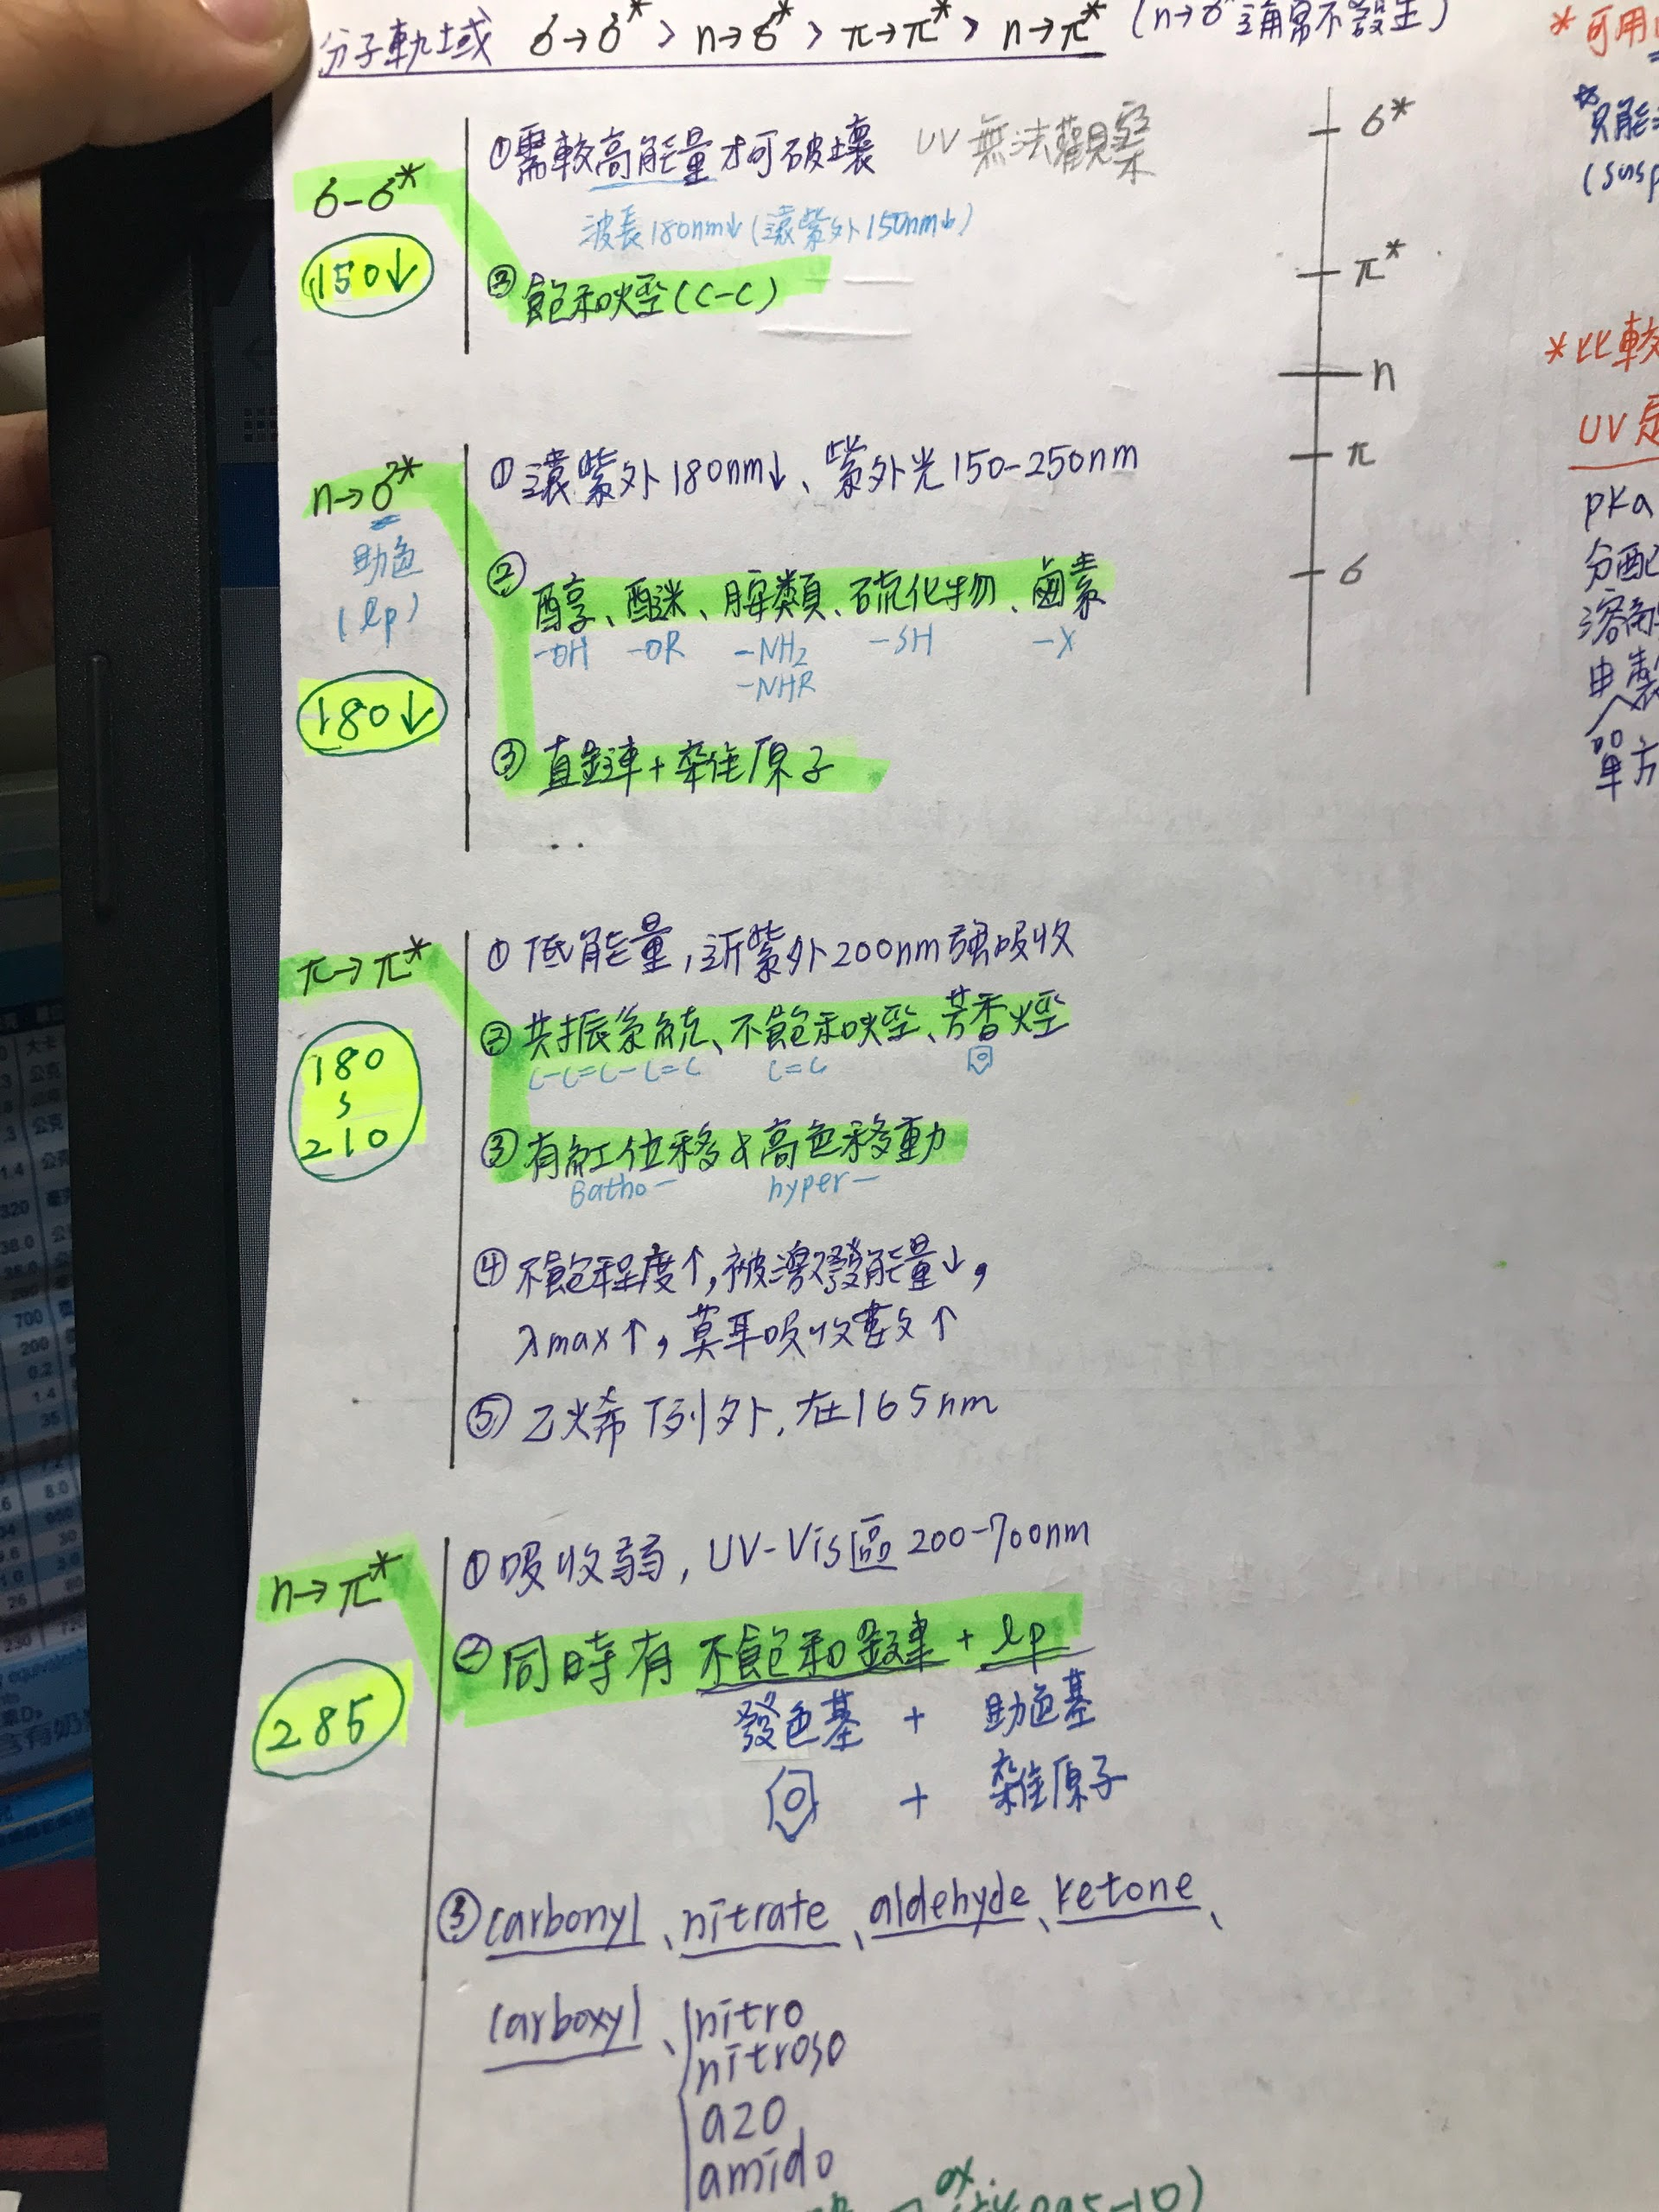 分子軌域 σ→σ* > n→σ* > π→π* > n→π* (n→σ*通常不發生)
σ-σ*
150↓
①需較高能量才可破壞 UV無法觀察
波長180nm↓(遠紫外150nm↓)
② 飽和烴(C-C)
n→σ*
助色
(lp)
180↓
① 遠紫外180nm↓、紫外光150-250nm
② 醇、醚、胺類、硫化物、鹵素
-OH -OR -NH2 -SH -X
-NHR
③ 直鏈+雜原子
π→π*
180
210
① 低能量,近紫外200nm強吸收
② 共振系統、不飽和烴、芳香烴
C-C=C-C=C C=C
③ 有紅位移&高色移動
Batho- hyper-
④ 不飽和程度↑,被激發能量↓,
λmax↑,莫耳吸收數↑
⑤ 乙烯例外,在165nm
n→π*
285
① 吸收弱, UV-Vis區 200-700nm
② 同時有 不飽和鍵+lp
發色基 + 助色基
+ 雜原子
③ carbonyl、nitrate、aldehyde、ketone、
carboxyl、nitro
nitroso
azo
amido
σ*
π*
n
π
σ
*可用
只能
(susp
*比較
UV
pKa
分配
單方
大卡
公克
公克
1.4
320
38.0
700
200
0.2
1.4
35
8.0
30
26
230
equivalent